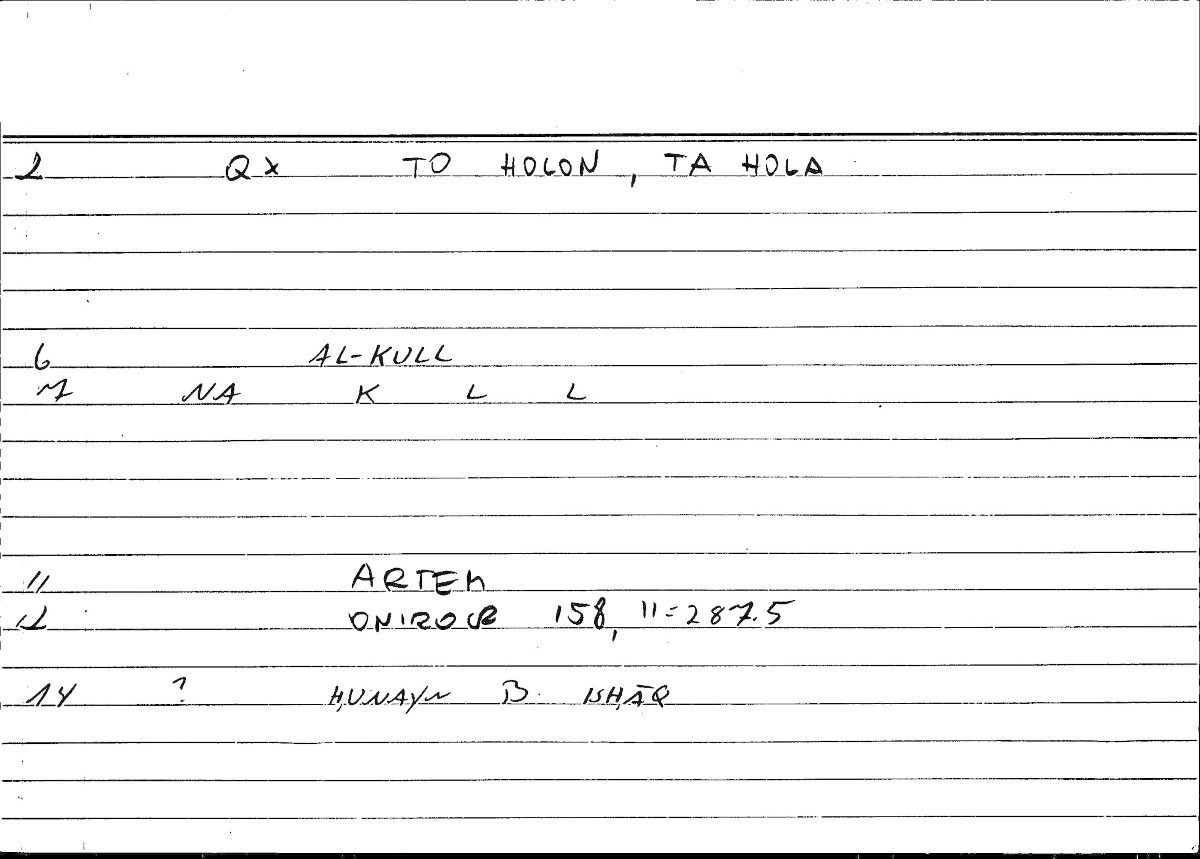 2 QX TO HOLON, TA HOLA
6 AL-KULL
7 NA K L L
11 ARTEM
12 ONIROCR 158, 11=287.5
14 ? ḤUNAYN B. ISḤĀQ